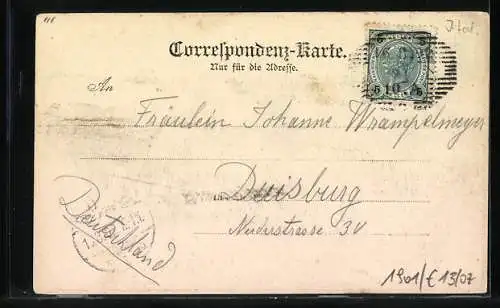 Ital.
Correspondenz-Karte.
Nur für die Adresse.
5 10 5
An
Fräulein Johanne Wrampelmeyer
Duisburg
Niederstrasse 30
Deutschland
1901/€ 13/07